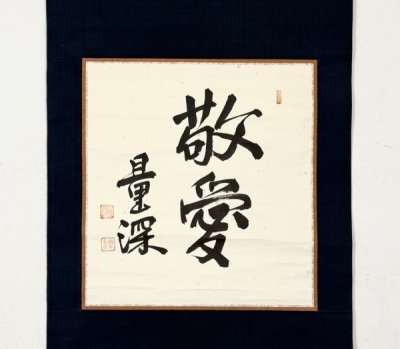 敬愛
量深